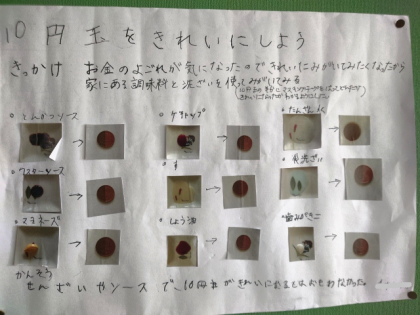 10円玉をきれいにしよう
きっかけ お金のよごれが気になったのできれいにみがいてみたくなったから
家にある調味料と洗ざいを使ってみがいてみる
とんかつソース
ケチャップ
ウスターソース
す
食洗ざい
マヨネーズ
しょう油
歯みがきこ
かんそう
せんざいやソースで、10円玉がきれいになるとはおもわなかった。